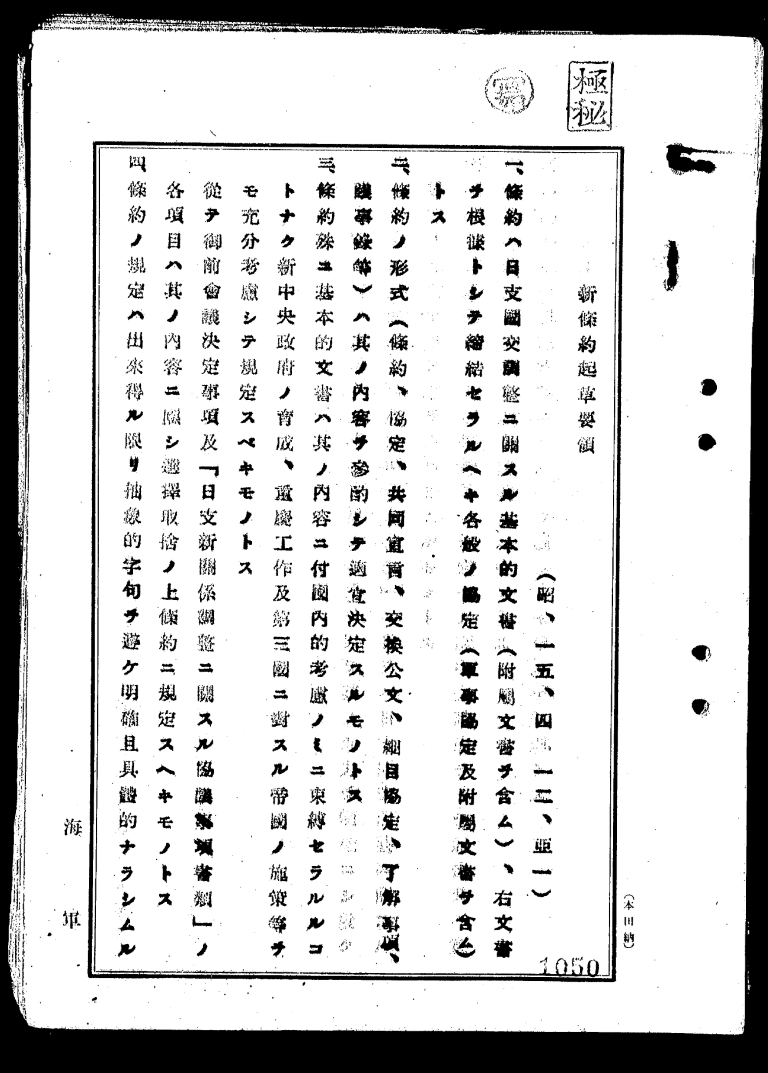 極秘
新條約起草要領
(昭、一五、四、一二、亜一)
一、條約ハ日支國交調整ニ關スル基本的文書(附屬文書ヲ含ム)、右文書
ヲ根據トシテ締結セラルヘキ各般ノ協定(軍事協定及附屬文書ヲ含ム)
トス
二、條約ノ形式(條約、協定、共同宣言、交換公文、細目協定、了解事項、
議事錄等)ハ其ノ内容ヲ參酌シテ適宜決定スルモノトス
三、條約殊ニ基本的文書ハ其ノ内容ニ付國内的考慮ノミニ束縛セラルルコ
トナク新中央政府ノ育成、重慶工作及第三國ニ對スル帝國ノ施策等ヲ
モ充分考慮シテ規定スベキモノトス
從テ御前會議決定事項及「日支新關係調整ニ關スル協議事項書類」ノ
各項目ハ其ノ内容ニ應シ選擇取捨ノ上條約ニ規定スヘキモノトス
四、條約ノ規定ハ出來得ル限リ抽象的字句ヲ避ケ明確且具體的ナラシムル
海軍
(本田納)
1050